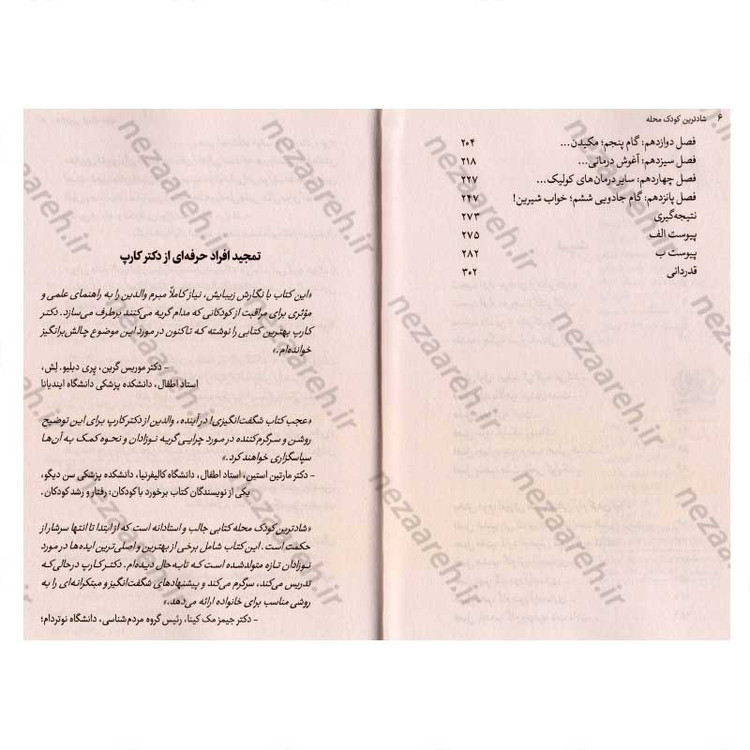 ۶ شادترین کودک محله
فصل دوازدهم: گام پنجم؛ مکیدن... ۲۰۴
فصل سیزدهم: آغوش درمانی... ۲۱۸
فصل چهاردهم: سایر درمان‌های کولیک... ۲۲۷
فصل پانزدهم: گام جادویی ششم؛ خواب شیرین! ۲۴۷
نتیجه‌گیری ۲۷۳
پیوست الف ۲۷۵
پیوست ب ۲۸۲
قدردانی ۳۰۲
تمجید افراد حرفه‌ای از دکتر کارپ
«این کتاب با نگارش زیبایش، نیاز کاملاً مبرم والدین را به راهنمای علمی و
مؤثری برای مراقبت از کودکانی که مدام گریه می‌کنند برطرف می‌سازد. دکتر
کارپ بهترین کتابی را نوشته که تاکنون در مورد این موضوع چالش‌برانگیز
خوانده‌ام.»
- دکتر موریس گرین، پری دبلیو. لش،
استاد اطفال، دانشکده پزشکی دانشگاه ایندیانا
«عجب کتاب شگفت‌انگیزی! در آینده، والدین از دکتر کارپ برای این توضیح
روشن و سرگرم‌کننده در مورد چرایی گریه نوزادان و نحوه کمک به آن‌ها
سپاسگزاری خواهند کرد.»
- دکتر مارتین استین، استاد اطفال، دانشگاه کالیفرنیا، دانشکده پزشکی سن دیگو،
یکی از نویسندگان کتاب برخورد با کودکان: رفتار و رشد کودکان.
«شادترین کودک محله کتابی جالب و استادانه است که از ابتدا تا انتها سرشار از
حکمت است. این کتاب شامل برخی از بهترین و اصلی‌ترین ایده‌ها در مورد
نوزادان تازه متولدشده است که تابه‌حال دیده‌ام. دکتر کارپ درحالی‌که
تدریس می‌کند، سرگرم می‌کند و پیشنهادهای شگفت‌انگیز و مبتکرانه‌ای را به
روشی مناسب برای خانواده ارائه می‌دهد.»
- دکتر جیمز مک کینا، رئیس گروه مردم‌شناسی، دانشگاه نوتردام؛
nezaareh.ir
nezaareh.ir
nezaareh.ir
nezaareh.ir
nezaareh.ir
nezaareh.ir